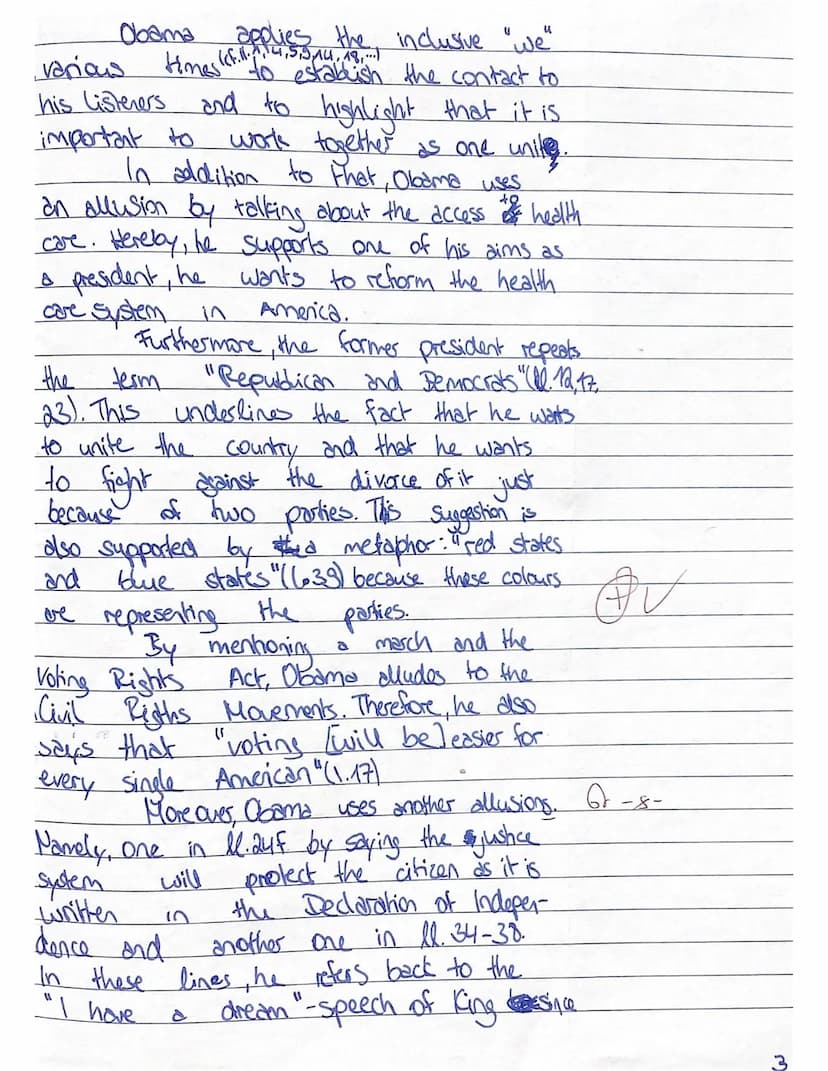 Obama applies the inclusive "we"
various times (cf. ll. 1, 4, 5, 9, 14, 18, ...) to establish the contact to
his listeners and to highlight that it is
important to work together as one unit.
In addition to that, Obama uses
an allusion by talking about the access to health
care. Hereby, he supports one of his aims as
a president, he wants to reform the health
care system in America.
Furthermore, the former president repeats
the term "Republican and Democrats" (ll. 12, 17,
23). This underlines the fact that he wants
to unite the country and that he wants
to fight against the divorce of it just
because of two parties. This suggestion is
also supported by a metaphor: "red states
and blue states" (l. 39) because these colours
are representing the parties.
By mentioning a march and the
Voting Rights Act, Obama alludes to the
Civil Rigths Movements. Therefore, he also
says that "voting [will be] easier for
every single American" (l. 17)
Moreover, Obama uses another allusions. Gr -s-
Namely, one in ll. 24f by saying the justice
system will protect the citizen as it is
written in the Declaration of Indepen-
dence and another one in ll. 34-38.
In these lines, he refers back to the
"I have a dream"-speech of King since
3